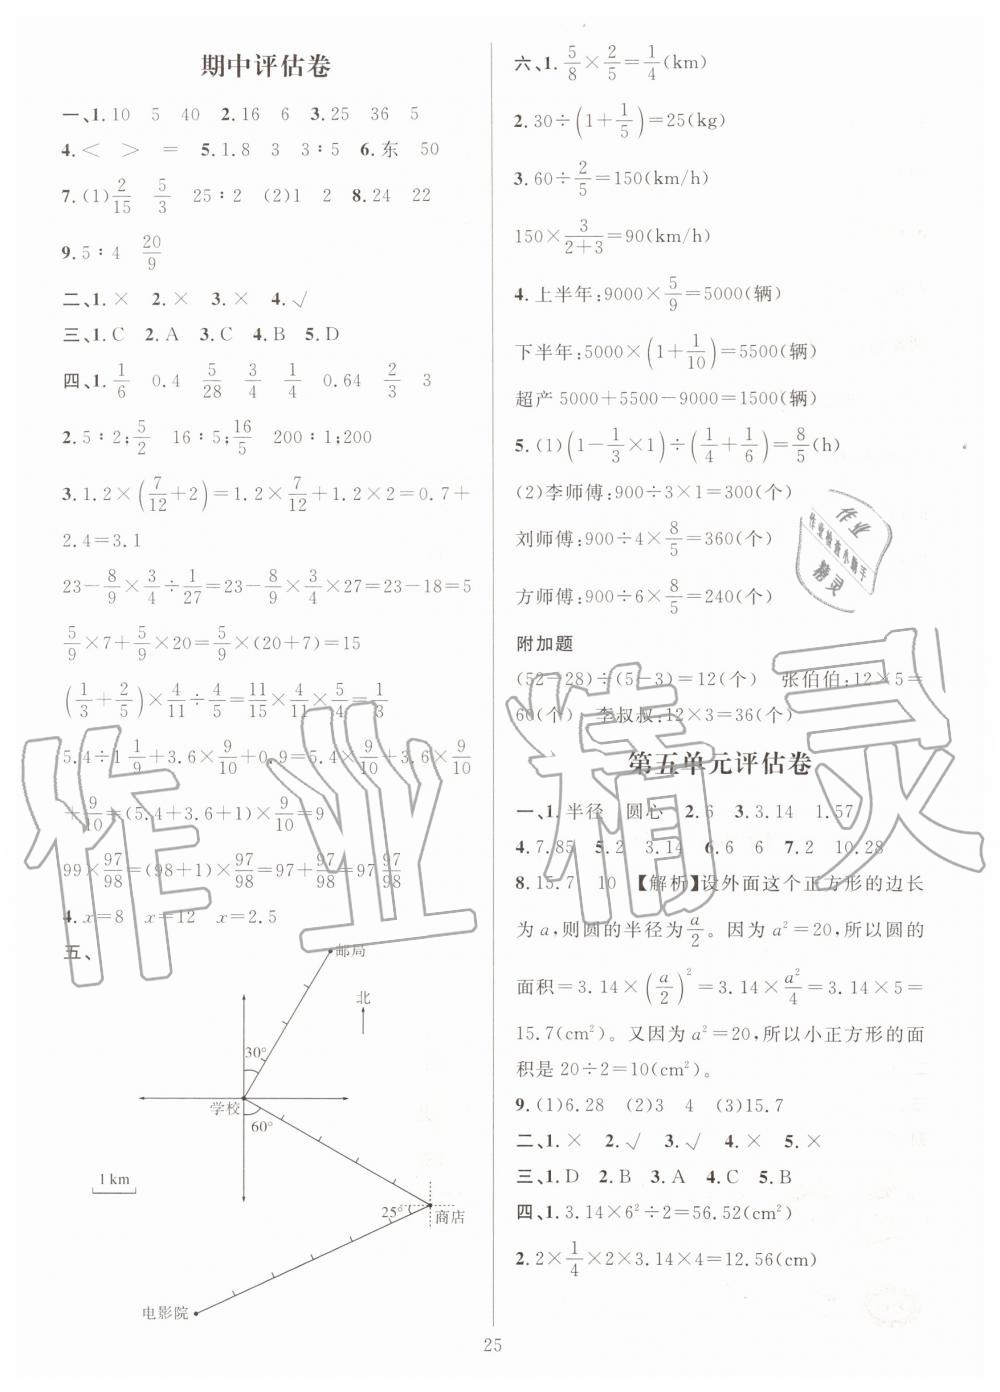 期中评估卷
一、1.10 5 40 2.16 6 3.25 36 5
4.< > = 5.1.8 3 3∶5 6.东 50
7.(1)2/15 5/3 25∶2 (2)1 2 8.24 22
9.5∶4 20/9
二、1.× 2.× 3.× 4.√
三、1.C 2.A 3.C 4.B 5.D
四、1.1/6 0.4 5/28 3/4 1/4 0.64 2/3 3
2.5∶2;5/2 16∶5;16/5 200∶1;200
3.1.2×(7/12+2)=1.2×7/12+1.2×2=0.7+
2.4=3.1
23-8/9×3/4÷1/27=23-8/9×3/4×27=23-18=5
5/9×7+5/9×20=5/9×(20+7)=15
(1/3+2/5)×4/11÷4/5=11/15×4/11×5/4=1/3
5.4÷1 1/9+3.6×9/10+0.9=5.4×9/10+3.6×9/10
+9/10=(5.4+3.6+1)×9/10=9
99×97/98=(98+1)×97/98=97+97/98=97 97/98
4.x=8 x=12 x=2.5
五、
邮局
北
30°
学校
60°
1 km
25°
商店
电影院
六、1.5/8×2/5=1/4(km)
2.30÷(1+1/5)=25(kg)
3.60÷2/5=150(km/h)
150×3/(2+3)=90(km/h)
4.上半年:9000×5/9=5000(辆)
下半年:5000×(1+1/10)=5500(辆)
超产 5000+5500-9000=1500(辆)
5.(1)(1-1/3×1)÷(1/4+1/6)=8/5(h)
(2)李师傅:900÷3×1=300(个)
刘师傅:900÷4×8/5=360(个)
方师傅:900÷6×8/5=240(个)
附加题
(52-28)÷(5-3)=12(个) 张伯伯:12×5=
60(个) 李叔叔:12×3=36(个)
第五单元评估卷
一、1.半径 圆心 2.6 3.3.14 1.57
4.7.85 5.2 3.14 6.6 6 7.2 10.28
8.15.7 10 【解析】设外面这个正方形的边长
为a,则圆的半径为a/2。因为a²=20,所以圆的
面积=3.14×(a/2)²=3.14×a²/4=3.14×5=
15.7(cm²)。又因为a²=20,所以小正方形的面
积是20÷2=10(cm²)。
9.(1)6.28 (2)3 4 (3)15.7
二、1.× 2.√ 3.√ 4.× 5.×
三、1.D 2.B 3.A 4.C 5.B
四、1.3.14×6²÷2=56.52(cm²)
2.2×1/4×2×3.14×4=12.56(cm)
25
作业精灵
作业
作业检查小助手
精灵